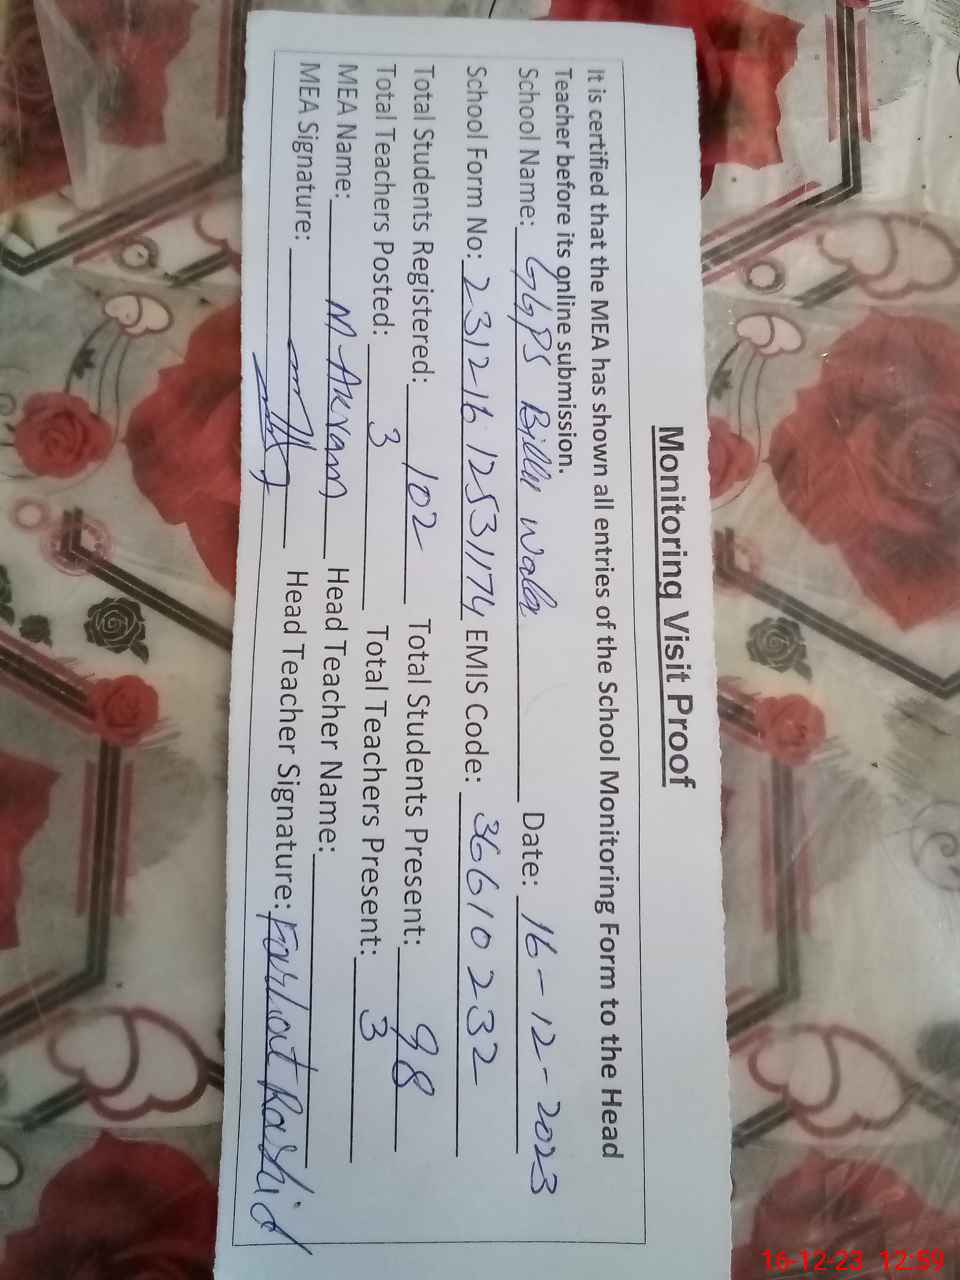 Monitoring Visit Proof
It is certified that the MEA has shown all entries of the School Monitoring Form to the Head
Teacher before its online submission.
School Name: GGPS Billu Wala Date: 16-12-2023
School Form No: 23121612531174 EMIS Code: 36610232
Total Students Registered: 102 Total Students Present: 98
Total Teachers Posted: 3 Total Teachers Present: 3
MEA Name: M. Akram Head Teacher Name:
MEA Signature: Head Teacher Signature: Farhat Rashid
16-12-23 12:59